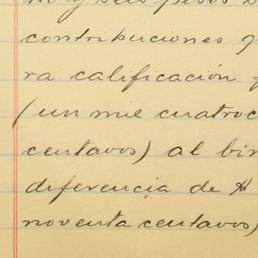 y seis pesos
contribuciones
ra calificación
(un mil cuatroc
centavos) al bim
diferencia de #
noventa centavos)